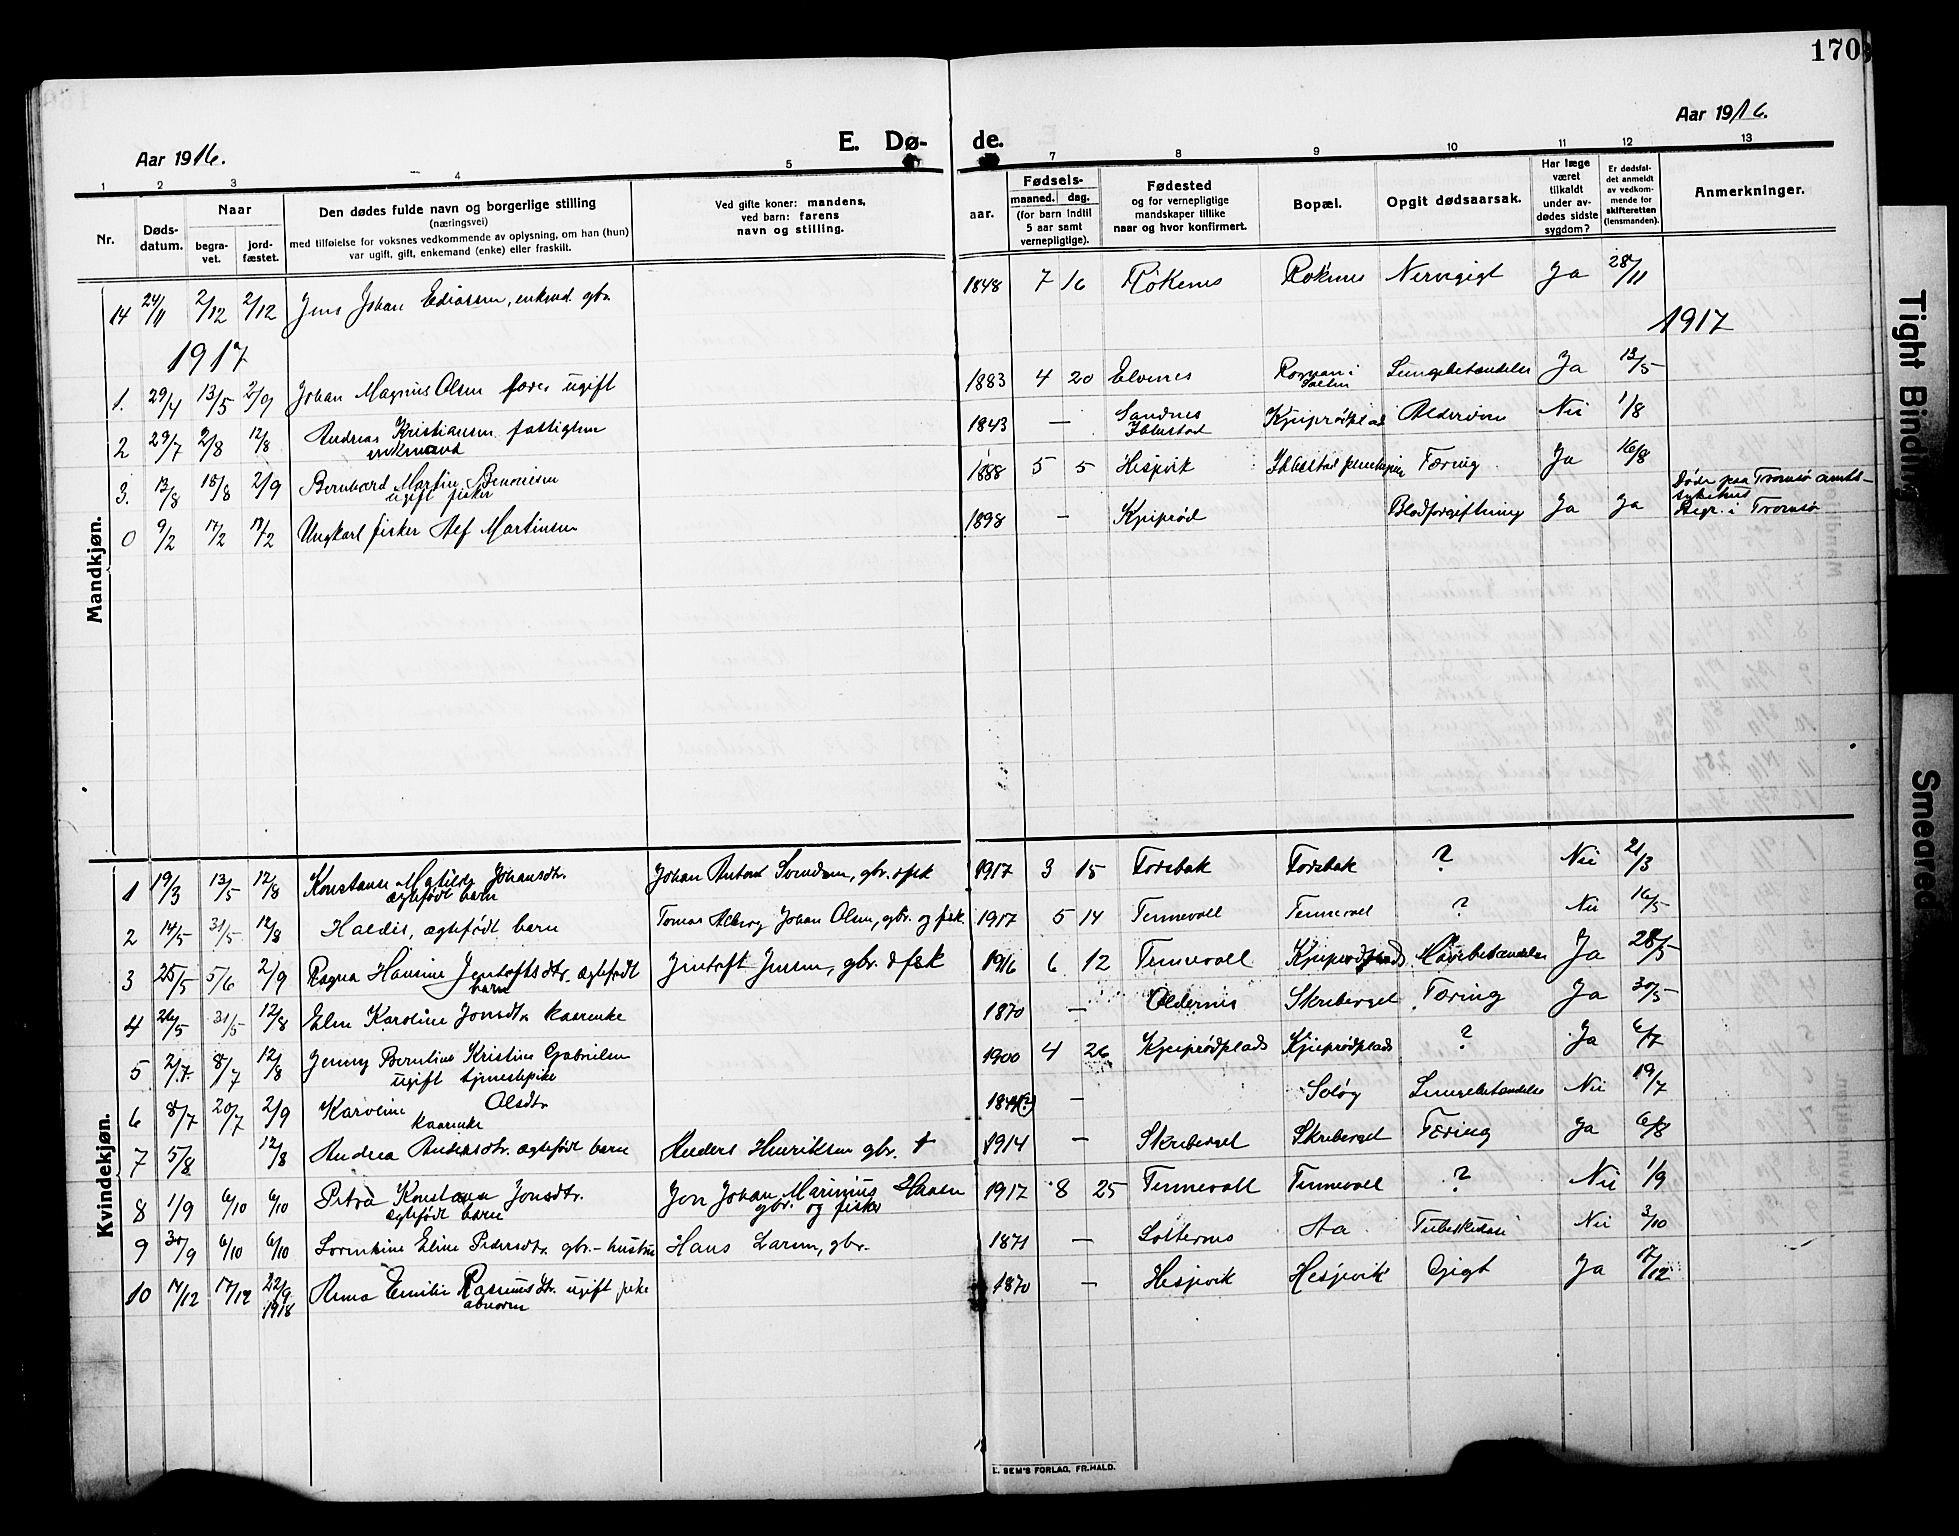 170
Aar 1916.
E. Dø-
de.
Aar 1916.
1 2 3 4 5 7 8 9 10 11 12 13
Nr.
Døds-
datum.
Naar
begra-
vet.
jord-
fæstet.
Den dødes fulde navn og borgerlige stilling
(næringsvei)
med tilføielse for voksnes vedkommende av oplysning, om han (hun)
var ugift, gift, enkemand (enke) eller fraskilt.
Ved gifte koner: mandens,
ved barn: farens
navn og stilling.
Fødsels-
aar.
maaned. dag.
(for barn indtil
5 aar samt
vernepligtige).
Fødested
og for vernepligtige
mandskaper tillike
naar og hvor konfirmert.
Bopæl.
Opgit dødsaarsak.
Har læge
været
tilkaldt
under av-
dødes sidste
sygdom?
Er dødsfal-
det anmeldt
av vedkom-
mende for
skifteretten
(lensmanden).
Anmerkninger.
Mandkjøn.
14 24/11 2/12 2/12 Jens Johan Ediassen, enkmd. gbr. 1848 7 16 Røkenes Røkenes Nervegigt Ja 28/11
1917
1917
1. 29/4 13/5 2/9 Johan Magnus Olsen ugift 1883 4 20 Elvenes Lungebetændelse Ja 13/5
2 29/7 2/8 12/8 Andreas Kristiansen fattiglem
enkemand 1843 — Sandnes
Ibbestad Kjeiprødplads Nei 1/8
3. 13/8 18/8 2/9 Bernhard Martin Benonisen
ugift fisker 1888 5 5 Hesjevik Tæring Ja 16/8
0 9/2 17/2 17/2 Ungkarl fisker Alf Martinsen 1898 - Kjeiprød Blodforgiftning Ja Ja Døde paa Tromsø amts-
sykehus
Begr. i Tromsø
Kvindekjøn.
1 19/3 13/5 12/8 Konstanse Matilde Johansdtr.
ægtefødt barn Johan Antoni Svendsen, gbr. & fisk 1917 3 15 Forsbak Forsbak ? Nei 21/3
2 14/5 31/5 12/8 Haldis, ægtefødt barn Tomas Johan Olsen, gbr. og fisk. 1917 5 14 Tennevoll Tennevoll ? Nei 16/5
3 25/5 5/6 2/9 Ragna Hansine Jentoftsdtr. ægtefødt
barn Jentoft Jensen, gbr. & fisk 1916 6 12 Tennevoll Kjeiprødplads Ja 28/5
4 26/5 31/5 12/8 Elen Karoline Jonsdtr. kaarenke 1870 — Oldernes Skreberget Tæring Ja 30/5
5 2/7. 8/7 12/8 Jenny Berntine Kristine Gabrielsen
ugift tjenestepike 1900 4 26 Kjeiprødplads Kjeiprødplads ? Ja 6/7
6 8/7 20/7 2/9 Karoline Olsdtr.
kaarenke — Soløy Lungebetændelse Nei 19/7
7 5/8 12/8 Andrea Andersdtr. ægtefødt barn Anders Henriksen gbr. † 1914 — Skreberget Skreberget Tæring Ja 6/8
8 1/9 6/10 6/10 Petra Konstanse Jonsdtr.
ægtefødt barn Jon Johan Marinius
gbr. og fisker 1917 8 25 Tennevoll Tennevoll ? Nei 1/9
9 30/9 6/10 6/10 Lorentine Eline Pedersdtr. gbr.-hustru Hans Larsen, gbr. 1871 — Aa Tuberkulose Nei 3/10
10 14/12 17/12 22/9
1918 Anna Emilie Rasmusdtr. ugift pike
abnorm 1870 — Hesjevik Hesjevik Gigt Ja 17/12
L. SEM'S FORLAG, FR.HALD.
Tight Binding
Smeared